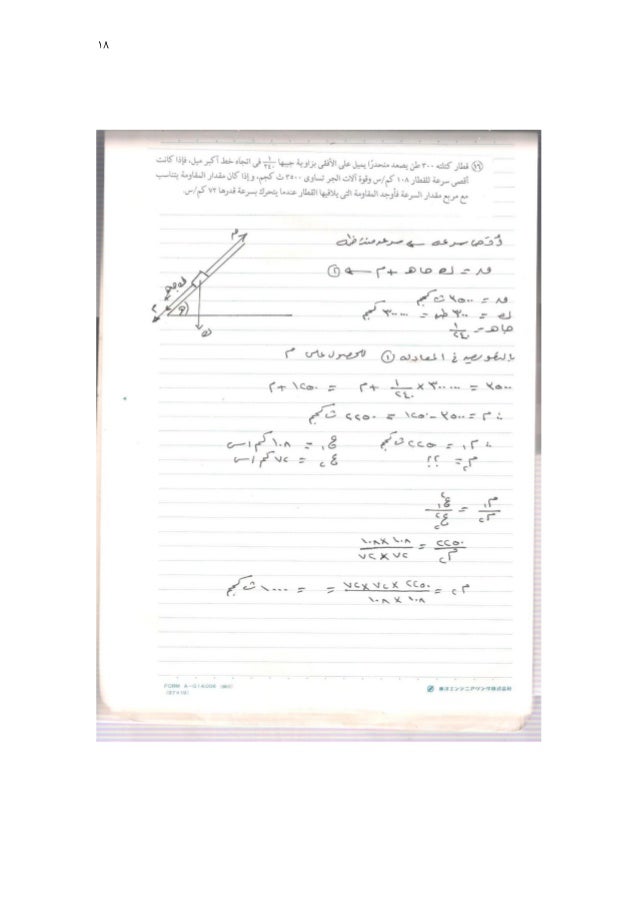 ١٨
١٦ قطار كتلته ٣٠٠ طن يصعد منحدرًا يميل على الأفقى بزاوية جيبها ١/٢٤٠ فى اتجاه خط أكبر ميل، فإذا كانت
أقصى سرعة للقطار ١٠٨ كم/س وقوة آلات الجر تساوى ٣٥٠٠ ث كجم، وإذا كان مقدار المقاومة يتناسب
مع مربع مقدار السرعة فأوجد المقاومة التى يلاقيها القطار عندما يتحرك بسرعة قدرها ٧٢ كم/س.
أقصى سرعة ← سرعه منتظمه
م
هـ
و
ن = ك جاهـ + م ← ١
ن = ٣٥٠٠ ث كجم
ك = ٣٠٠ طن = ٣٠٠٠٠٠ كجم
جاهـ = ١/٢٤٠
بالتعويض فى المعادله ١ للحصول على م
٣٥٠٠ = ٣٠٠٠٠٠ × ١/٢٤٠ + م = ١٢٥٠ + م
∴ م = ٣٥٠٠ - ١٢٥٠ = ٢٢٥٠ ث كجم
∴ م١ = ٢٢٥٠ ث كجم ع١ = ١٠٨ كم/س
م٢ = ؟؟ ع٢ = ٧٢ كم/س
م١/م٢ = ع١²/ع٢²
٢٢٥٠/م٢ = ١٠٨ × ١٠٨/٧٢ × ٧٢
م٢ = ٢٢٥٠ × ٧٢ × ٧٢/١٠٨ × ١٠٨ = = ١٠٠٠ ث كجم
FORM A-